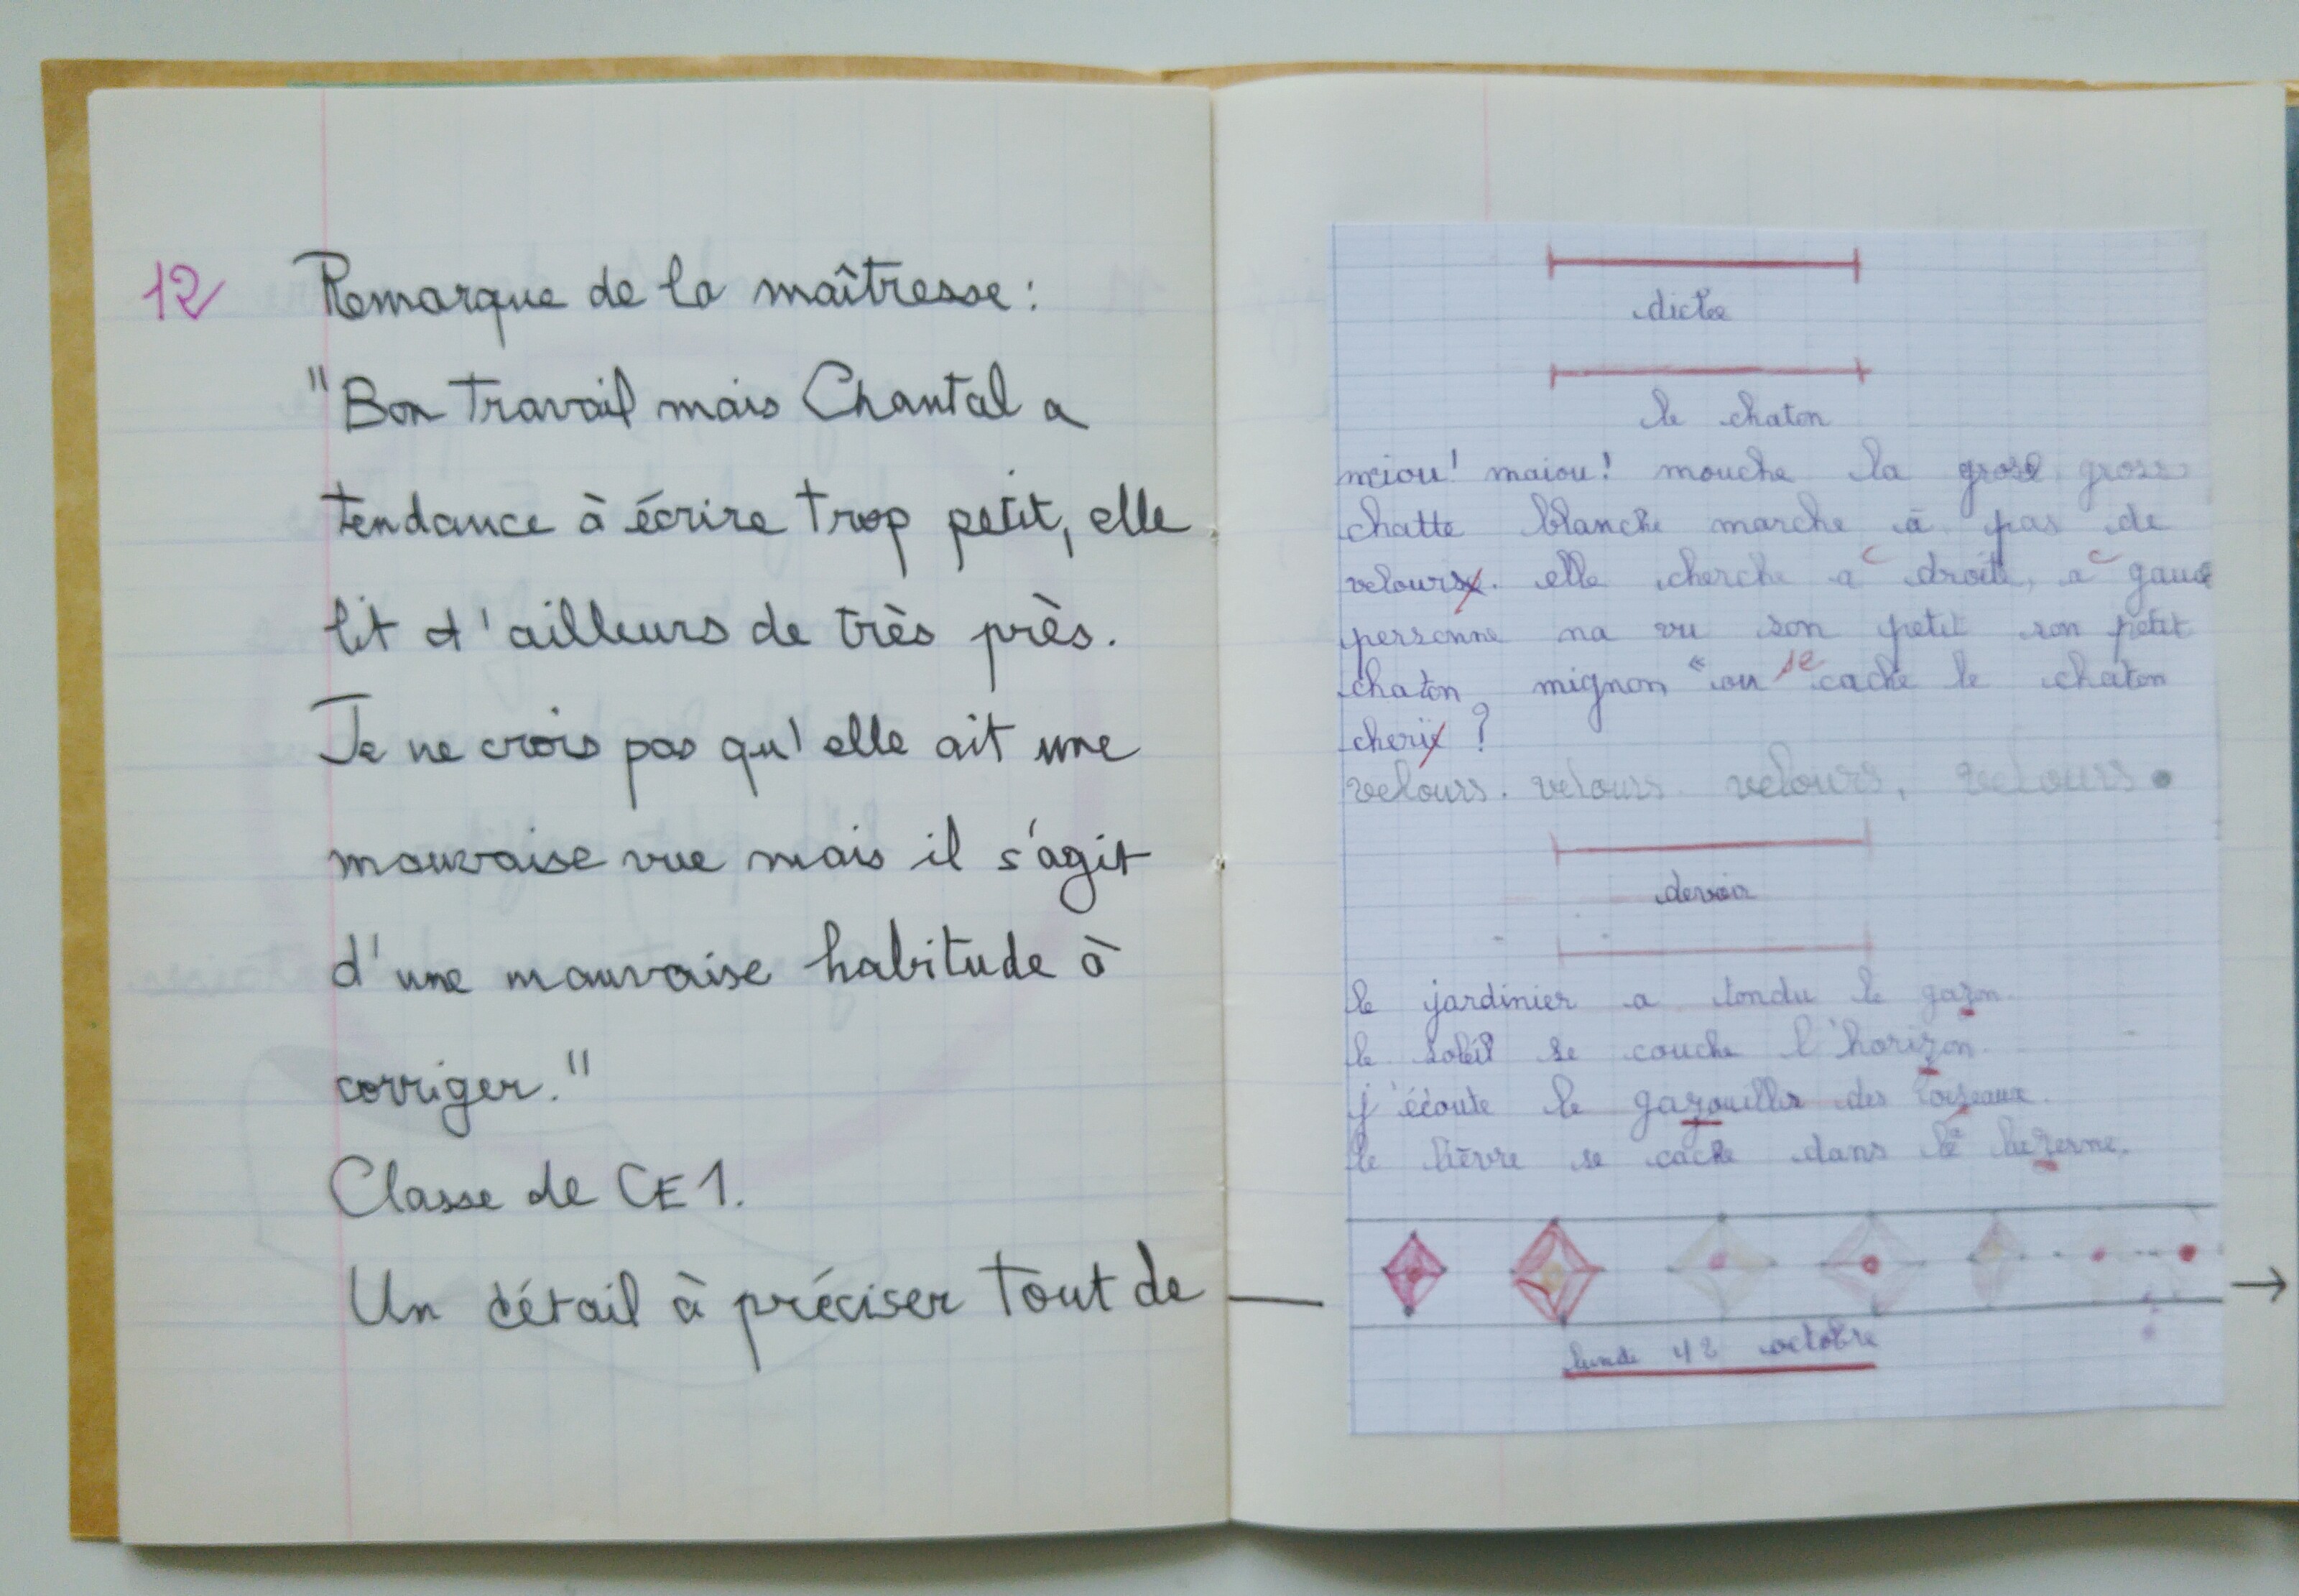 12
Remarque de la maîtresse :
"Bon travail mais Chantal a
tendance à écrire trop petit, elle
lit d'ailleurs de très près.
Je ne crois pas qu'elle ait une
mauvaise vue mais il s'agit
d'une mauvaise habitude à
corriger."
Classe de CE1.
Un détail à préciser tout de
dictée
le chaton
miaou! maiou! mouche la grose grosse
chatte blanche marche à pas de
veloursx. elle cherche a droite, a gauc
personne na vu son petit son petit
chaton mignon "ou se cache le chaton
cherix ?
velours. velours velours, velours.
devoir
le jardinier a tondu le gazon.
le soleil se couche l'horizon.
j'écoute le gazouillis des oiseaux.
le lièvre se cache dans la luzerne.
lunde 12 octobre